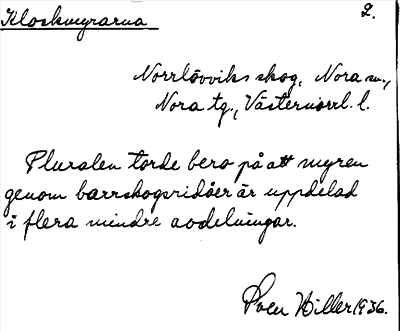 Klockmyrarna 2.
Norrlövviks skog, Nora sn.,
Nora tg., Västernorrl. l.
Pluralen torde bero på att myren
genom barrskogsridåer är uppdelad
i flera mindre avdelningar.
Sven Hiller 1936.